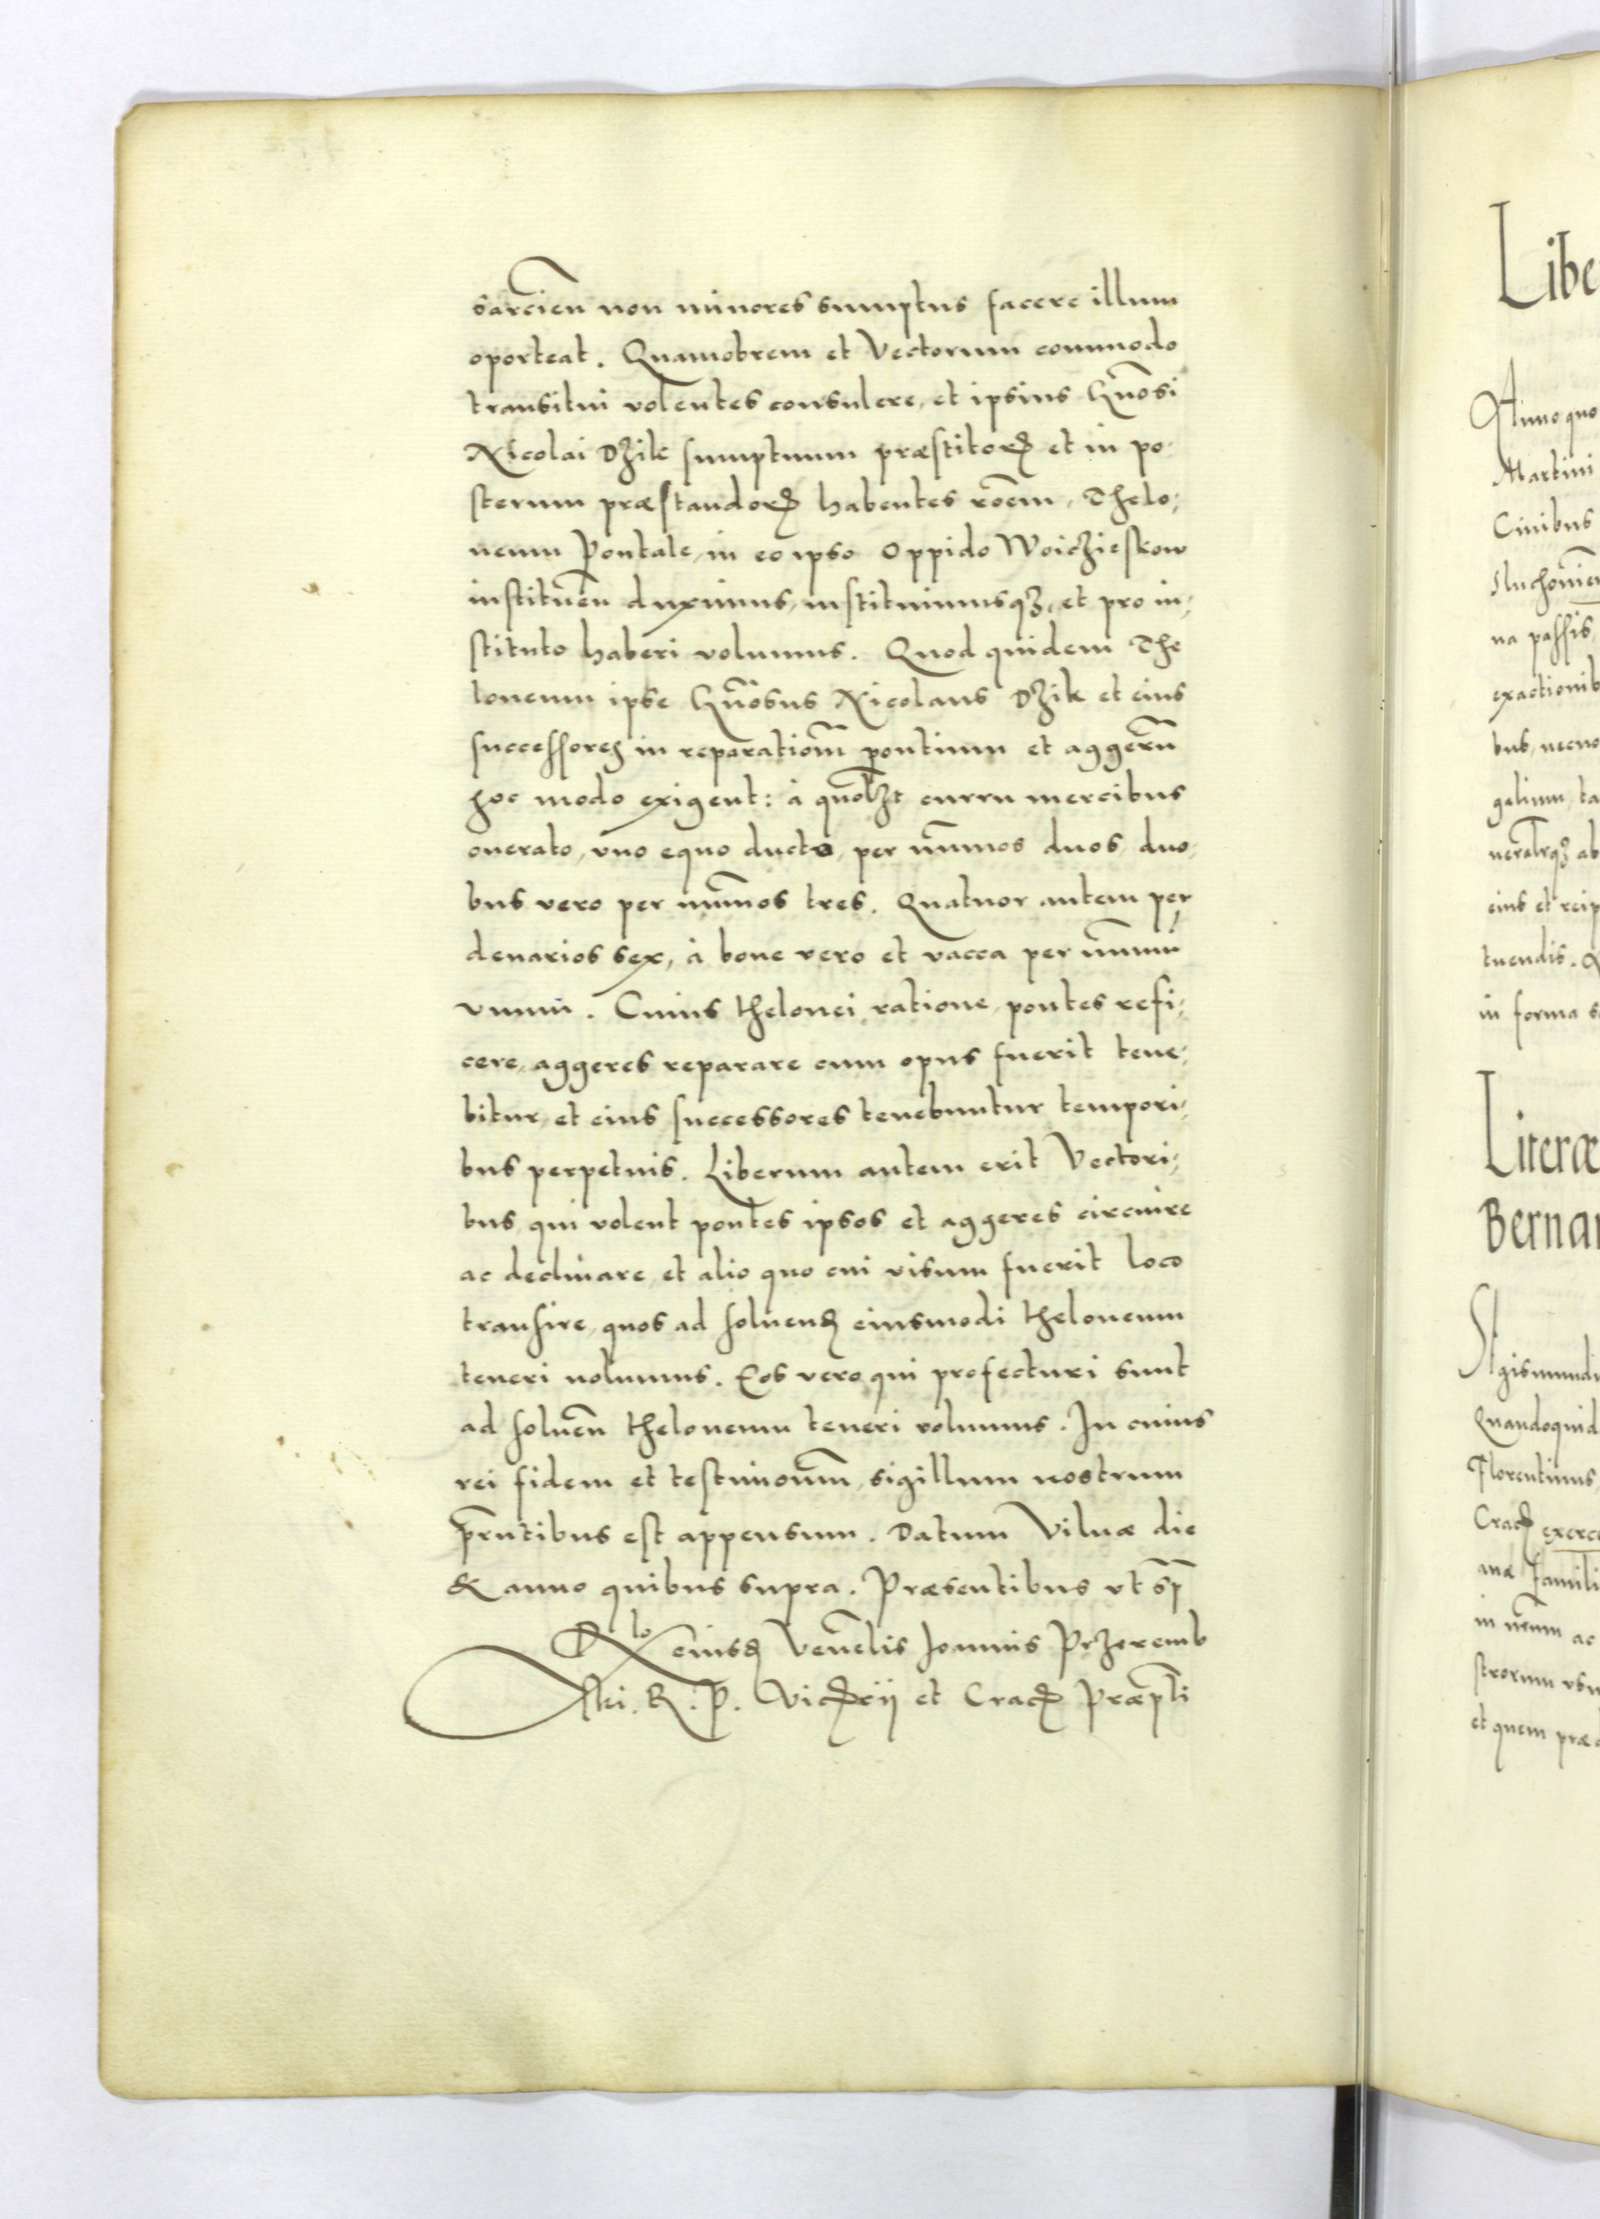 sarcien̄ non minores sumptus facere illum
oporteat. Quamobrem et Vectorum commodo
transitui volentes consulere, et ipsius Gn̄osi
Nicolai Dzik sumptuum præstitorꝝ et in po-
sterum præstandorꝝ habentes rōem, Thelo,
neum Pontale, in eo ipso Oppido Woiczieskow
instituen̄ duximus, instituimusqꝫ, et pro in,
stituto haberi volumus. Quod quidem The
loneum ipse Gn̄osus Nicolaus Dzik et eius
successores in reparatiom̄ pontium et aggerū
hoc modo exigent: à quolꝫt curru mercibus
onerato, vno equo ducto, per nūmos duos, duo,
bus vero per nūmos tres. Quatuor autem per
denarios sex, à boue vero et vacca per nūmū
vnum. Cuius thelonei ratione, pontes refi,
cere, aggeres reparare cum opus fuerit tene,
bitur, et eius successores tenebuntur tempori,
bus perpetuis. Liberum autem erit Vectori,
bus, qui volent pontes ipsos et aggeres circuire
ac declinare, et alio quo cui visum fuerit loco
transire, quos ad soluenꝝ eiusmodi theloneum
teneri nolumus. Eos vero qui profecturi sunt
ad soluen̄ theloneum teneri volumus. In cuius
rei fidem et testimoniū, sigillum nostrum
pr̄ntibus est appensum. Datum Vilnæ die
& anno quibus supra. Præsentibus vt sp̄
Rlo eiusꝝ Ven̄elis Joannis Przeremb
ski. R. P. Vicꝝrij et Cracꝝ Præpt̄i
Libe
Anno quo
Martini
Ciuibus
na passis,
exactionib
bus, necno
gelium, ta
eius et reip
tuendis. Q
in forma s
Literæ
Bernar
Sigismundu
Quandoquid
Florentinus,
Cracꝝ exerce
anæ Famili
in ac
strorum vsu
et quem præd